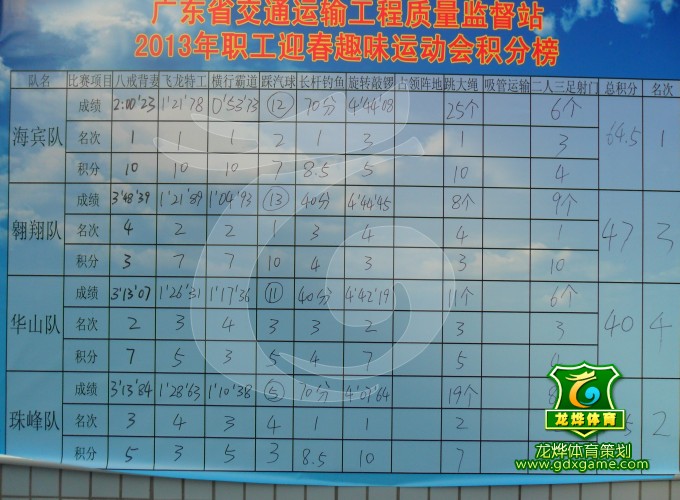 广东省交通运输工程质量监督站
2013年职工迎春趣味运动会积分榜
队名 比赛项目 八戒背妻 飞龙特工 横行霸道 踩汽球 长杆钓鱼 旋转敲锣 占领阵地 跳大绳 吸管运输 二人三足射门 总积分 名次
海宾队 成绩 2:00'23 1'21'78 0'53'73 12 70分 4'44'08 25个 6个 64.5 1
名次 1 1 1 2 1 3 1 3
积分 10 10 10 7 8.5 5 10 4
翱翔队 成绩 3'48'39 1'21'89 1'04'93 13 40分 4'44'45 8个 9个 47 3
名次 4 2 2 1 3 4 4 1
积分 3 7 7 10 4 3 3 10
华山队 成绩 3'13'07 1'26'31 1'17'36 11 40分 4'42'19 11个 6个 40 4
名次 2 3 4 3 3 2 3 3
积分 7 5 3 5 4 7 5
珠峰队 成绩 3'13'84 1'28'63 1'10'38 5 70分 4'07'64 19个 2
名次 3 4 3 4 1 1 2
积分 5 3 5 3 8.5 10 7
龙烨体育
龙烨体育策划
www.gdxgame.com